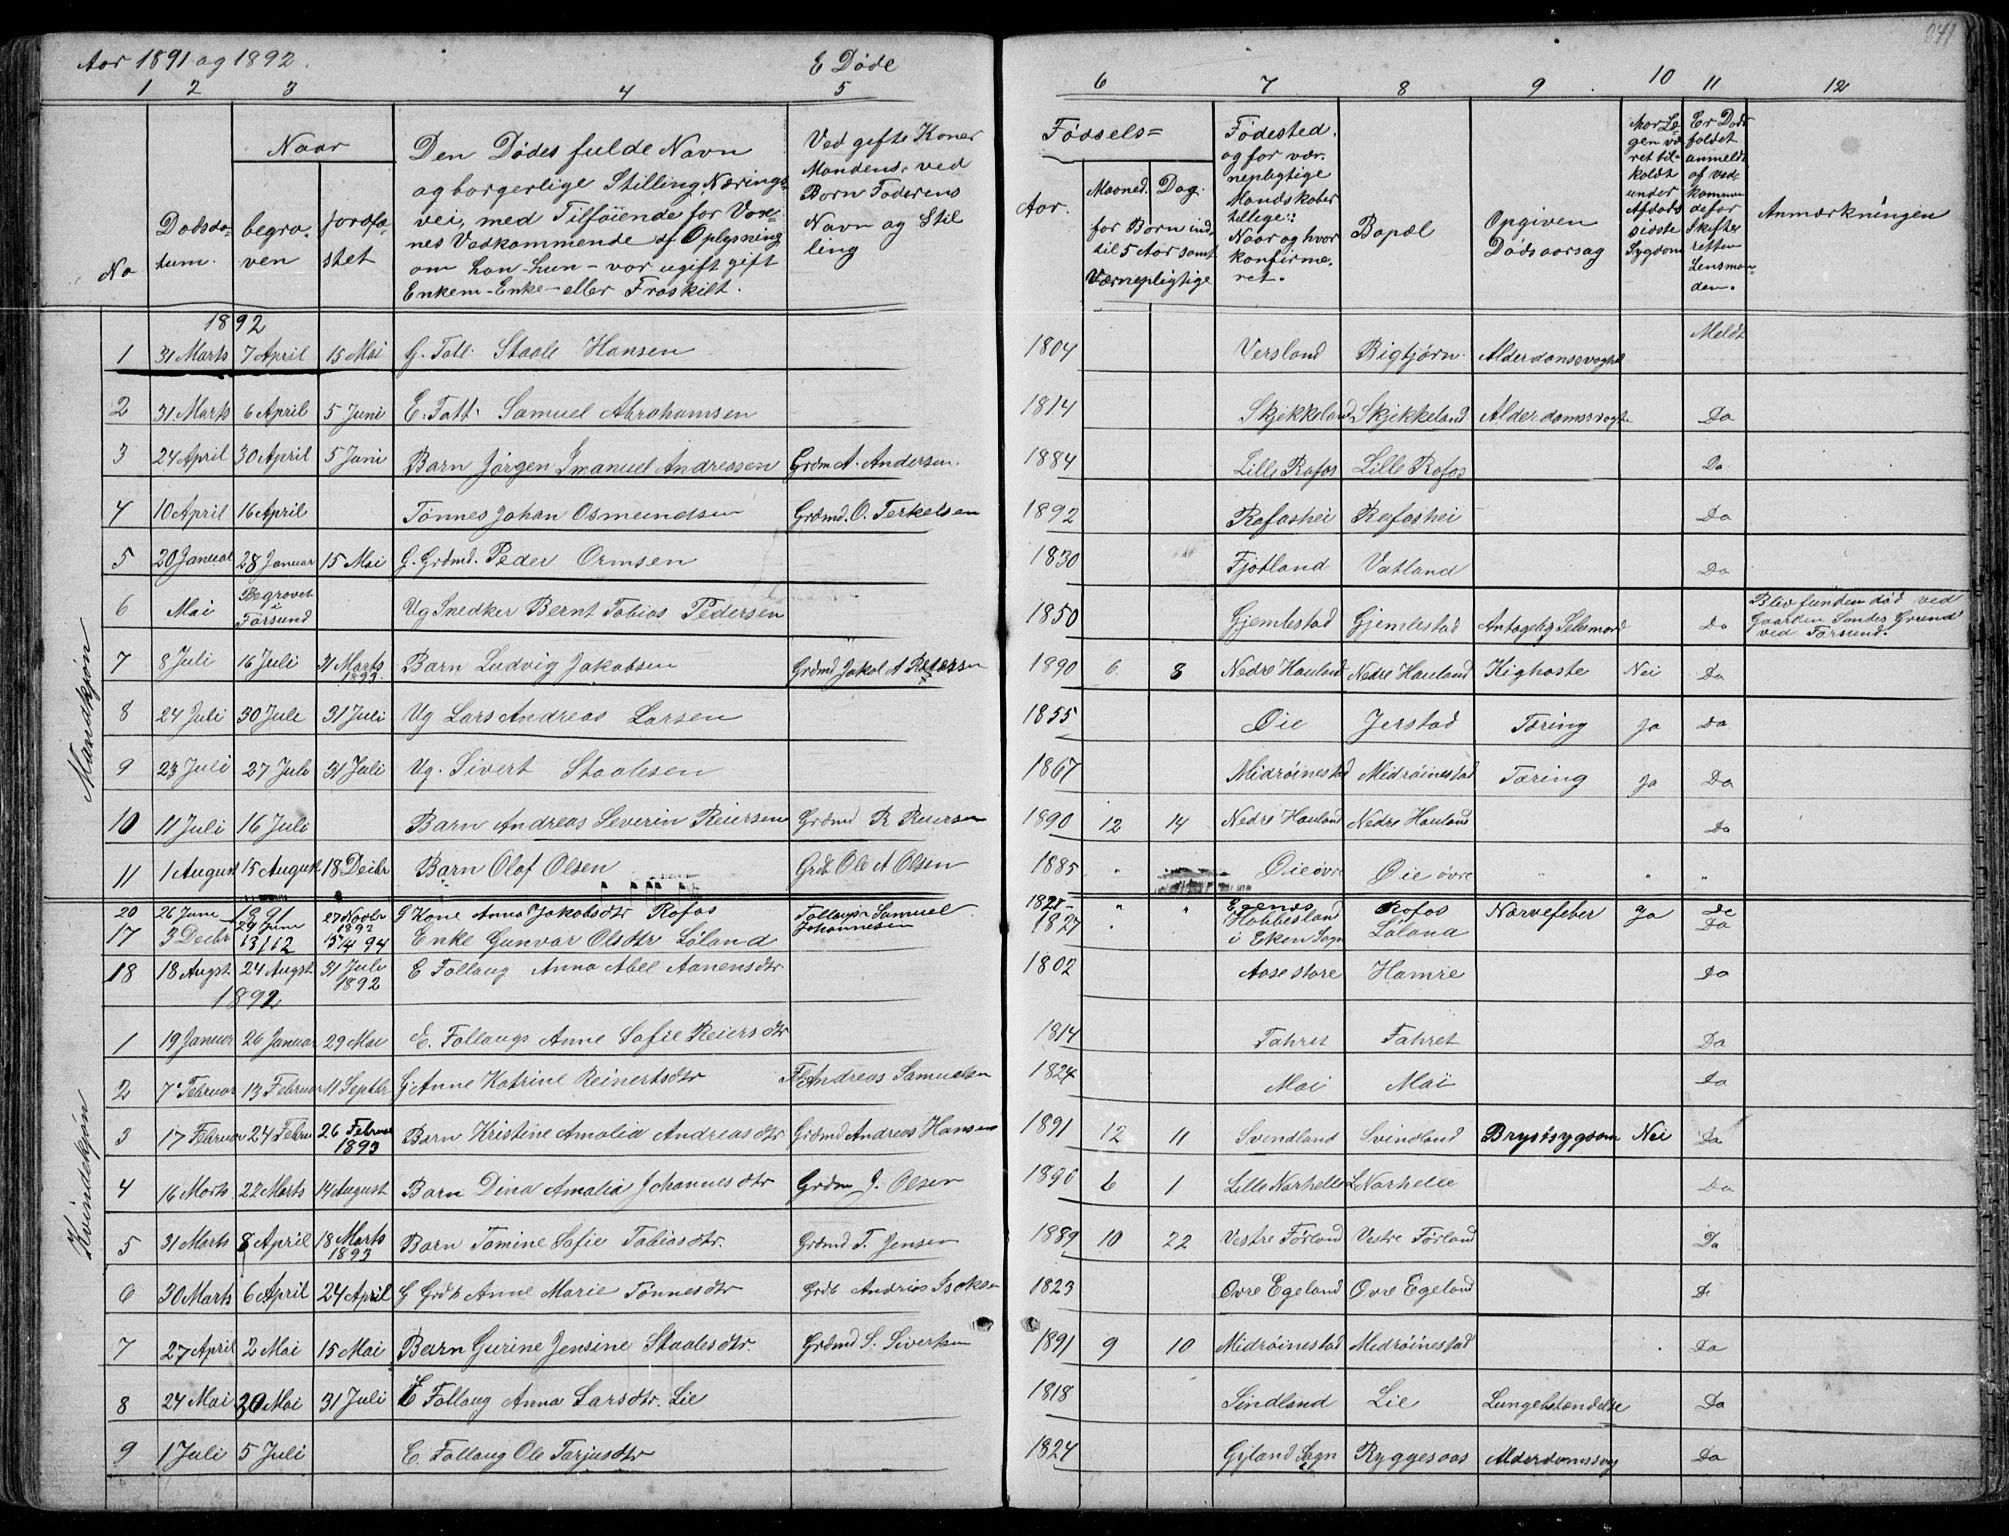 Aar 1891 og 1892. E Døde 241
1 2 3 4 5 6 7 8 9 10 11 12
No
Dødsdatum.
Naar
begraven
jordfæstet
Den Dødes fulde Navn
og borgerlige Stilling, Nærings
vei, med Tilføiende for Vox-
nes Vedkommende af Oplysning
om han-hun- var ugift gift
Enkem-Enke- eller Fraskilt.
Ved gifte Koner
Mandens, ved
Børn Faderens
Navn og Stil
ling
Fødsels=
Aar.
Maaned. Dag.
for Børn ind
til 5 Aar samt
Værnepligtige
Fødested,
og for vær-
nepligtige
Mandskaber
tillige:
Naar og hvor
konfirme-
ret.
Bopæl
Opgiven
Dødsaarsag
Har Læ-
gen væ
ret til-
kaldt
under
Afdødes
sidste
Sygdom
Er Døds
faldet
anmeldt
af ved-
kommen
de for
Skifte
retten
Lensman-
den.
Anmærkningen
Mandkjøn
1892
1 31 Marts 7 April 15 Mai G. Fatt. Staale Hansen 1804 Versland Bigtjørn Alderdomssvaghed Meldt
2 31 Marts 6 April 5 Juni E. Fatt. Samuel Abrahamsen 1814 Skjekkeland Skjekkeland Alderdomssvagh Da
3 24 April 30 April 5 Juni Barn Jørgen Emanuel Andreasen Grdm A. Andersen 1884 Lille Rafos Lille Rafos Da
4 10 April 16 April Tønnes Johan Osmundsen Grdmd. O. Terkelsen 1892 Rafoshei Rafoshei Da
5 20 Januar 28 Januar 15 Mai G. Grdmd. Peder Ormsen 1830 Fjotland Vatland Da
6 Mai Begravet i Farsund Ug Snedker Bernt Tobias Pedersen 1850 Gjemlestad Gjemlestad Antagelig Selvmord Da Blev funden død ved
Gaarden Sandes Grund
ved Farsund.
7 8 Juli 16 Juli 31 Marts 1893 Barn Ludvig Jakobsen Grdmd Jakob A Petersen 1890 6 8 Nedre Hauland Nedre Hauland Kighoste Nei Da
8 24 Juli 30 Juli 31 Juli Ug Lars Andreas Larsen 1855 Øie Jerstad Tæring Ja Da
9 23 Juli 27 Juli 31 Juli Ug. Sivert Staalesen 1867 Midrøinestad Midrøinestad Tæring Ja Da
10 11 Juli 16 Juli Barn Andreas Severin Reiersen Grdmd R Reiersen 1890 12 14 Nedre Hauland Nedre Hauland Da
11 1 August 15 August 18 Decbr Barn Olaf Olsen Grdb Ole A Olsen 1885 " Øie øvre Øie øvre " " "
Kvindekjøn
20 26 June 1891 29 June 27 Novbr 1892 G Kone Anna Jakobsdtr Rafos Samuel Johannesen 1828 " " Rafos Nervefeber Ja De
17 3 Decbr 13/12 15/4 94 Enke Gunvor Olsdtr Løland 1827 Hobbesland i Eken Sogn Løland Da
18 18 Augst 24 Augst 31 Juli 1892 E Fattang Anna Abel Aanensdtr 1802 Aase store Hamre Da
1892
1 19 Januar 26 Januar 29 Mai E. Fattangs Anne Sofie Reiersdtr 1814 Fahret Fahret Da
2 7 Februar 13 Februar 11 Septbr G. Anne Katrine Reinertsdtr Andreas Samuelsen 1824 Moi Moi Da
3 17 Februar 24 Febru 26 Februar 1893 Barn Kristine Amalia Andreasdtr Grdmd Andreas Hansen 1891 12 11 Svendland Svindland Brystsygdom Nei Da
4 16 Marts 22 Marts 14 August Barn Dina Amalia Johannesdtr Grdm J. Olsen 1890 6 1 Lille Narhelle L Narhelle Da
5 31 Marts 8 April 18 Marts 1893 Barn Tomine Sofie Tobiasdtr. Grdmd T. Jensen 1889 10 22 Vestre Førland Vestre Førland Da
6 30 Marts 6 April 24 April G Grdb Anne Marie Tønnesdtr Grdb Andreas Isaksen 1823 Øvre Egeland Øvre Egeland D
7 27 April 2 Mai 15 Mai Barn Gurine Jensine Staalesdtr. Grdmd S. Sivertsen 1891 9 10 Midrøinestad Medrøinestad Da
8 24 Mai 30 Mai 31 Juli E Fattang Anna Larsdtr. Lie 1818 Sindland Lie Lungebetændelse Da
9 1 Juli 5 Juli E. Fattang Ole Tarjusdtr 1824 Gyland Sogn Ryggesaas Alderdomssvag Da